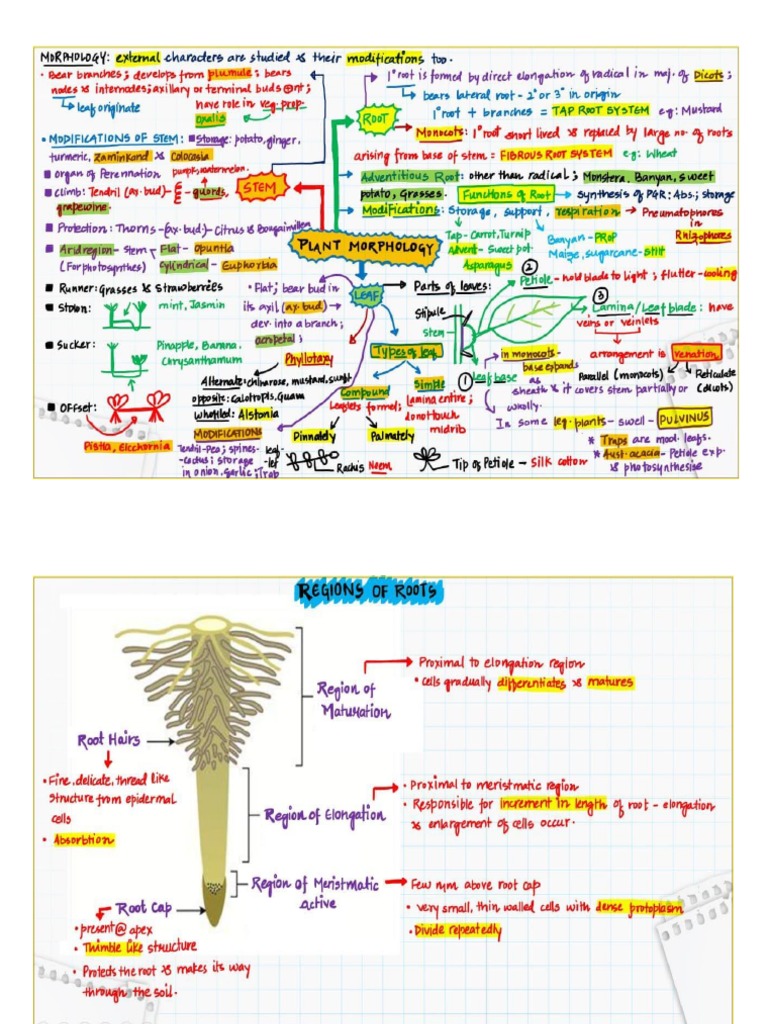 MORPHOLOGY: external characters are studied & their modifications too.
• Bear branches; develops from plumule; bears
nodes & internodes; axillary or terminal buds
↳ leaf originate
have role in veg. prop.
• MODIFICATIONS OF STEM: Storage: potato, ginger,
turmeric, zaminkand & Colocasia
organ of Perennation
pumpk, watermelon.
climb: Tendril (ax. bud) - guords,
grapewine.
Protection: Thorns - (ax. bud) - Citrus & Bougainvillea
Arid region - stem - Flat - Opuntia
(For photosynthes) Cylindrical - Euphorbia
STEM
1° root is formed by direct elongation of radical in maj. of Dicots;
↳ bears lateral root - 2° or 3° in origin
1° root + branches = TAP ROOT SYSTEM eg: Mustard
ROOT
Monocots: 1° root short lived & replaced by large no. of roots
arising from base of stem = FIBROUS ROOT SYSTEM eg: Wheat
Adventitious Root: other than radical; Monstera, Banyan, sweet
potato, Grasses.
Functions of Root → synthesis of PGR; Abs.; storage
Modifications: Storage, support, respiration → Pneumatophores
in
Rhizophores
Tap - Carrot, Turnip
Advent - Sweet pot
Asparagus
Banyan - PROP
Maize, sugarcane - stilt
PLANT MORPHOLOGY
Runner: Grasses & Strawberries
Stolon: mint, Jasmin
Sucker: Pineapple, Banana,
Chrysanthamum
OFFset:
Pistia, Eicchornia
• Flat; bear bud in
its axil (ax. bud) →
dev. into a branch;
acropetal;
LEAF
Phyllotaxy
Alternate: chinarose, mustard, sunft
opposite: Calotropis, Guam
whorlled: Alstonia
MODIFICATIONS
Tendril - Pea; spines -
- Cactus; storage
in onion, garlic; Trap
Types of leaf
Compound
Leaflets formed;
Simple
lamina entire;
donot touch
midrib
Pinnately
Palmately
leaf-
-let
Rachis Neem
Tip of Petiole - Silk cotton
Parts of leaves:
Stipule
stem
② Petiole - hold blade to light; flutter - cooling
③ Lamina/Leaf blade: have
veins or veinlets
arrangement is venation
Parallel (monocots)
Reticulate
(dicots)
① leaf base
in monocots -
base expands
as
sheath & it covers stem partially or
wholly.
In some leg. plants - swell - PULVINUS
* Traps are mod. leafs.
* Aust. acacia - Petiole exp.
& photosynthesise
REGIONS OF ROOTS
Region of
Maturation
→ Proximal to elongation region
• Cells gradually differentiates & matures
Root Hairs
• Fine, delicate, thread like
structure from epidermal
cells
• Absorbtion
Region of Elongation
• Proximal to meristmatic region
• Responsible for increment in length of root - elongation
& enlargement of cells occur.
Region of Meristmatic
active
→ Few mm above root cap
• very small, thin walled cells with dense protoplasm
• Divide repeatedly
Root Cap
• present @ apex
• Thimble like structure
• Protects the root & makes its way
through the soil.